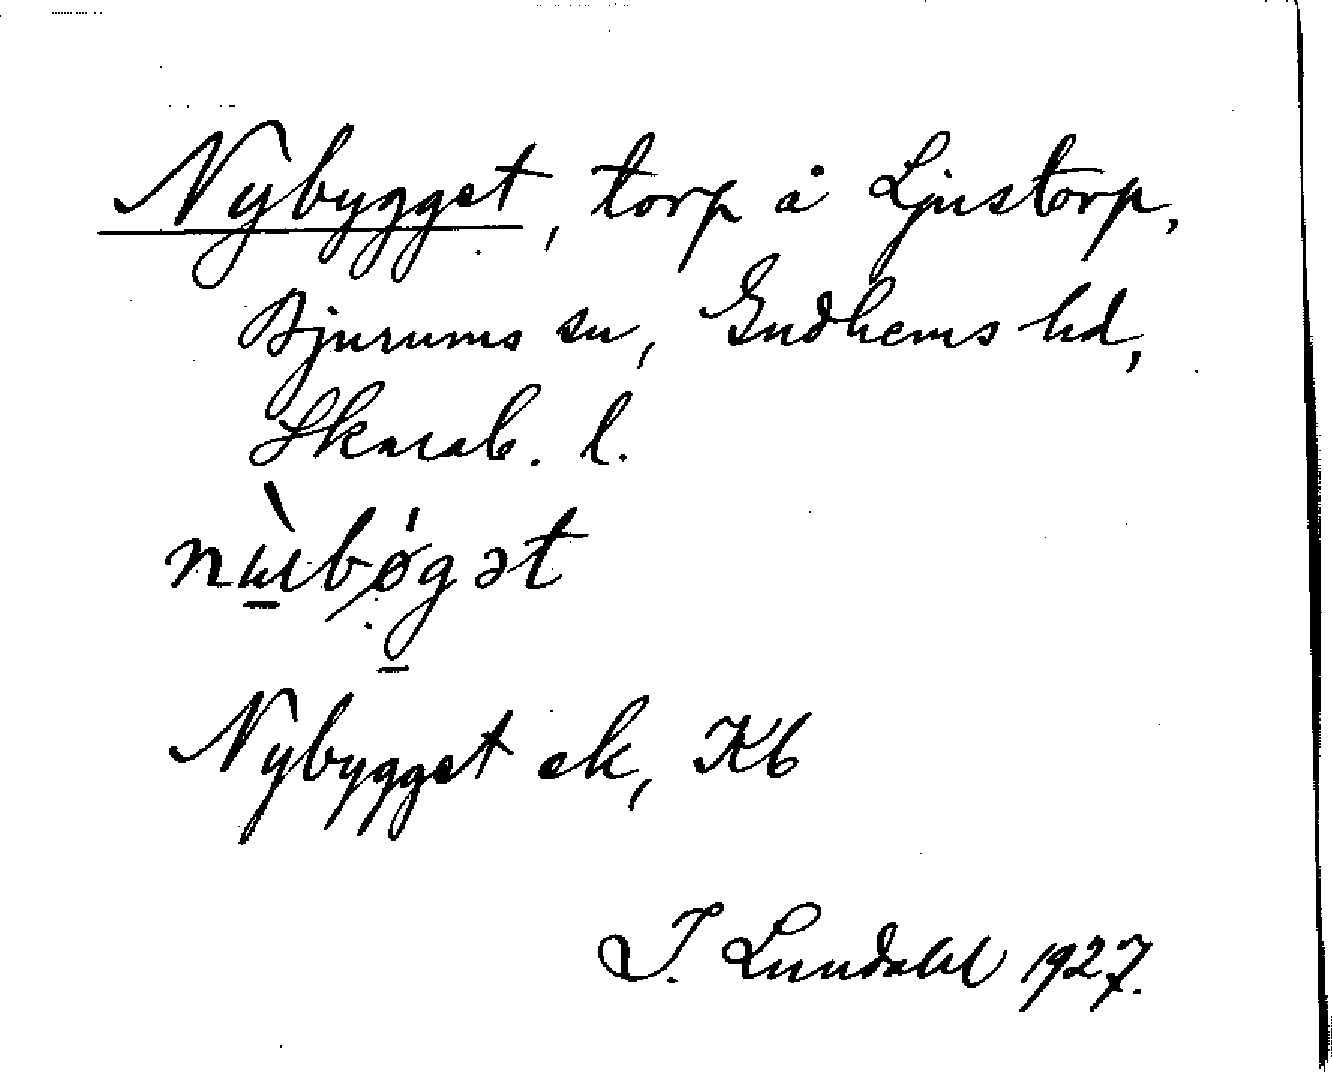 Nybygget, torp å Ljustorp,
Bjurums sn, Gudhems hd,
Skarab. l.
Nybygget ek, Kb
I. Lundahl 1927.